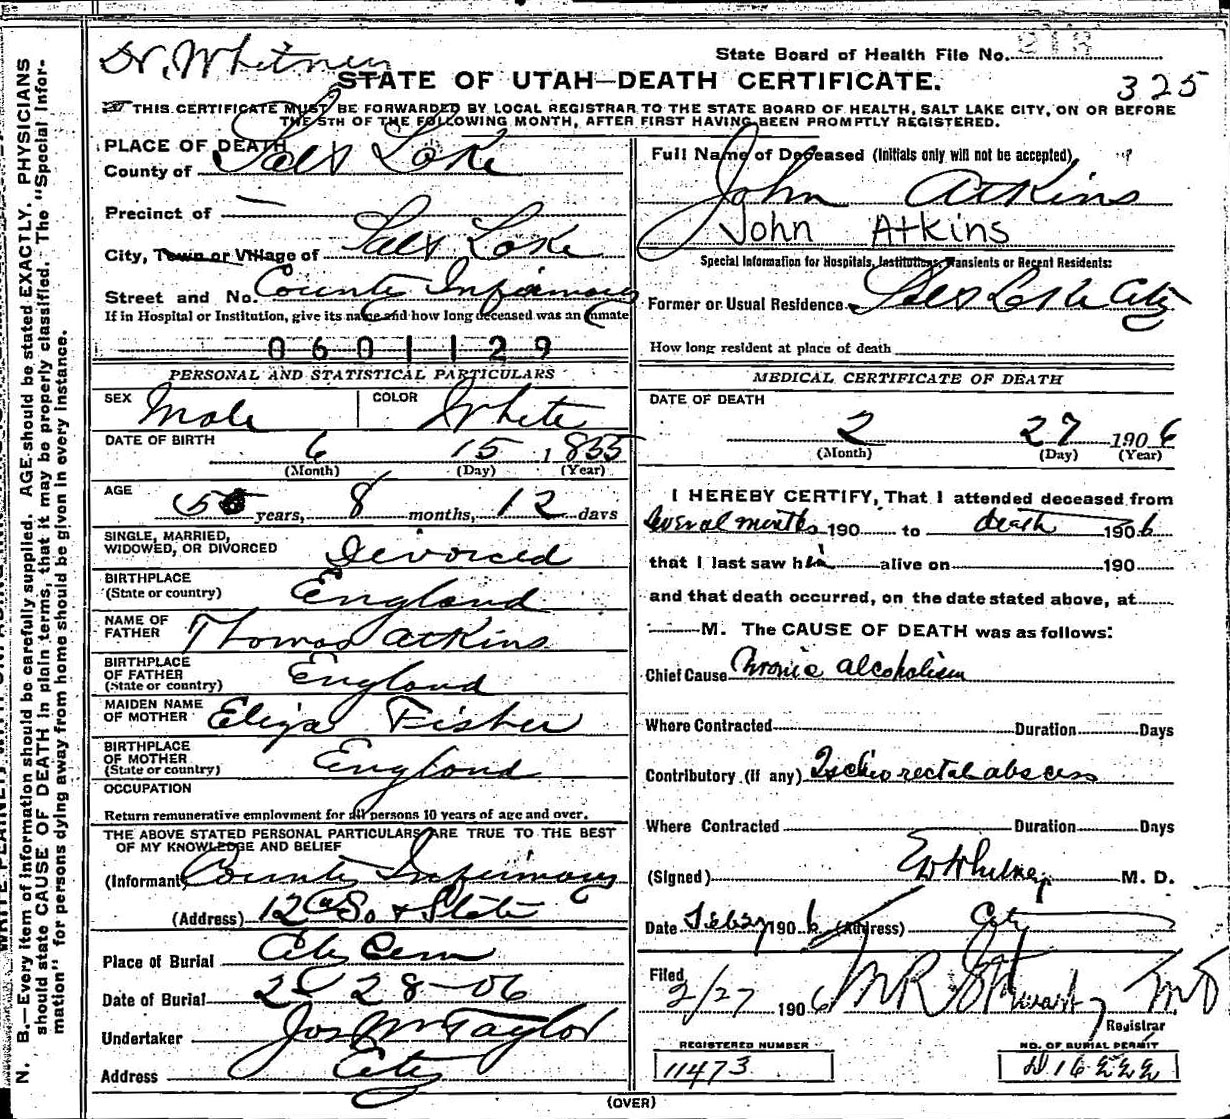 Dr. Whitney
State Board of Health File No. 213
325
STATE OF UTAH—DEATH CERTIFICATE.
THIS CERTIFICATE MUST BE FORWARDED BY LOCAL REGISTRAR TO THE STATE BOARD OF HEALTH, SALT LAKE CITY, ON OR BEFORE
THE 5TH OF THE FOLLOWING MONTH, AFTER FIRST HAVING BEEN PROMPTLY REGISTERED.
PLACE OF DEATH
County of Salt Lake
Precinct of —
City, Town or Village of Salt Lake
Street and No. County Infirmary
If in Hospital or Institution, give its name and how long deceased was an inmate
0601129
PERSONAL AND STATISTICAL PARTICULARS
SEX Male COLOR White
DATE OF BIRTH 6 15 1855
(Month) (Day) (Year)
AGE 50 years, 8 months, 12 days
SINGLE, MARRIED,
WIDOWED, OR DIVORCED Divorced
BIRTHPLACE
(State or country) England
NAME OF
FATHER Thomas Atkins
BIRTHPLACE
OF FATHER
(State or country) England
MAIDEN NAME
OF MOTHER Eliza Fisher
BIRTHPLACE
OF MOTHER
(State or country) England
OCCUPATION
Return remunerative employment for all persons 10 years of age and over.
THE ABOVE STATED PERSONAL PARTICULARS ARE TRUE TO THE BEST
OF MY KNOWLEDGE AND BELIEF
(Informant County Infirmary
(Address) 12th So & State
Place of Burial City Cem
Date of Burial 2 28-06
Undertaker Jos Wm Taylor
Address City
Full Name of Deceased (Initials only will not be accepted)
John Atkins
John Atkins
Special Information for Hospitals, Institutions, Transients or Recent Residents:
Former or Usual Residence Salt Lake City
How long resident at place of death
MEDICAL CERTIFICATE OF DEATH
DATE OF DEATH
2 27 1906
(Month) (Day) (Year)
I HEREBY CERTIFY, That I attended deceased from
several months 190 to death 1906
that I last saw him alive on 190
and that death occurred, on the date stated above, at
M. The CAUSE OF DEATH was as follows:
Chief Cause Chronic alcoholism
Where Contracted Duration Days
Contributory (if any) Ischio rectal abscess
Where Contracted Duration Days
(Signed) Whitney M. D.
Date Feb 27 1906 (Address) City
Filed
2/27 1906 Stewart MD
Registrar
REGISTERED NUMBER
11473
NO. OF BURIAL PERMIT
D 16222
(OVER)
N. B.—Every item of information should be carefully supplied. AGE should be stated EXACTLY. PHYSICIANS
should state CAUSE OF DEATH in plain terms, that it may be properly classified. The "Special Infor-
mation" for persons dying away from home should be given in every instance.